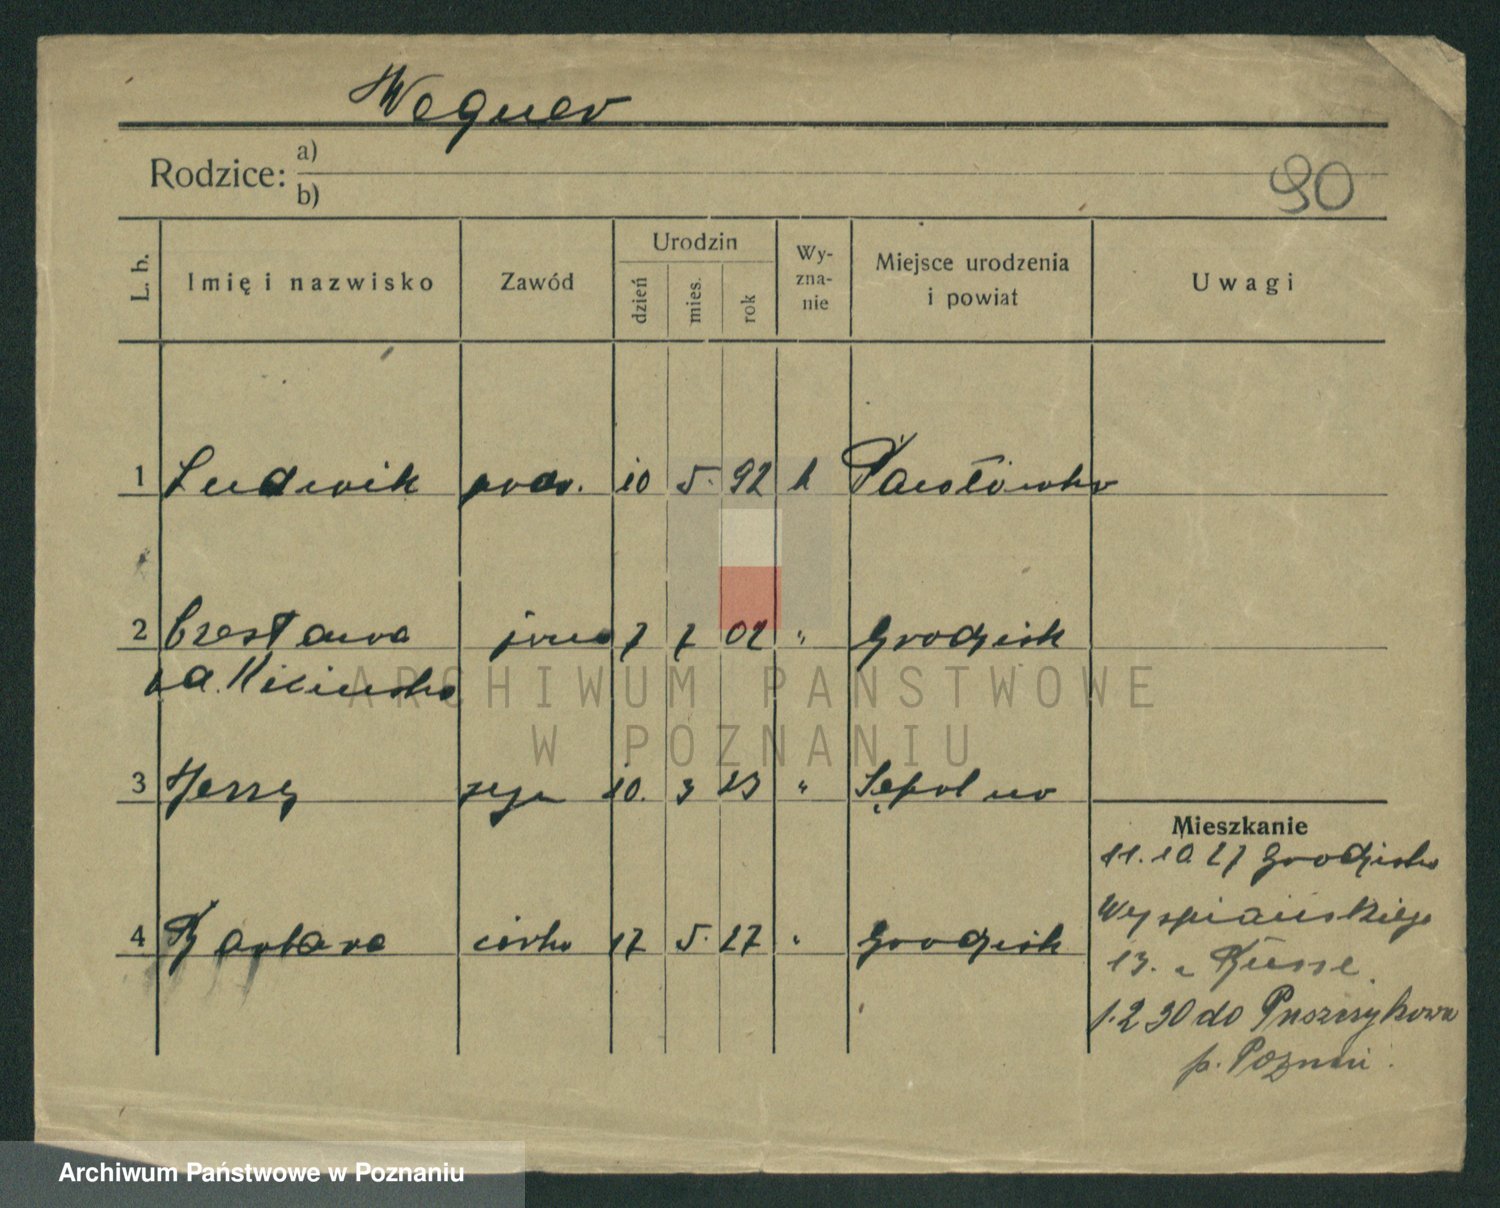 Wegner
Rodzice: a)
b)
90
L. b. Imię i nazwisko Zawód Urodzin dzień mies. rok Wy-zna-nie Miejsce urodzenia i powiat Uwagi
1 Ludwik 10 5. 92 k Pawłówko
2 Czesława żona 7 7 02 " Grodzisk
3 Jerzy syn 10. 3 23 " Sępolno
Mieszkanie
11.10.27 Grodzisko
Wyspiańskiego
4 Barbara córka 17 5. 27 " Grodzisk
13.
1.2 30 do Puszczykowa
p. Poznań.
ARCHIWUM PAŃSTWOWE
W POZNANIU
Archiwum Państwowe w Poznaniu